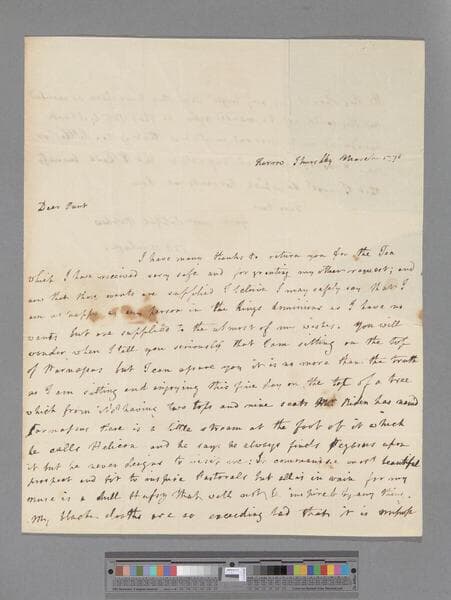 Harrow Thursday March
Dear Aunt
I have many thanks to return you for the Tea
which I have received very safe and for granting my other request; and
now that these wants are supplied I believe I may safely say that I
am as happy as any person in the Kings dominions as I have no
wants but are supplied to the utmost of my wishes. You will
wonder when I tell you seriously that I am sitting on the top
of Parnassus but I can assure you it is no more than the truth
as I am sitting and enjoying this fine day on the top of a tree
which from its having two tops and nine seats Mr has named
Parnassus there is a little stream at the foot of it which
he calls Helicon and he says he always finds Pegasus upon
it but he never deigns to me: It commands a most beautiful
prospect and fit to inspire Pastorals but all is in vain for my
muse is a dull that will not be inspired by any thing.
My Black cloths are so exceeding bad that it is